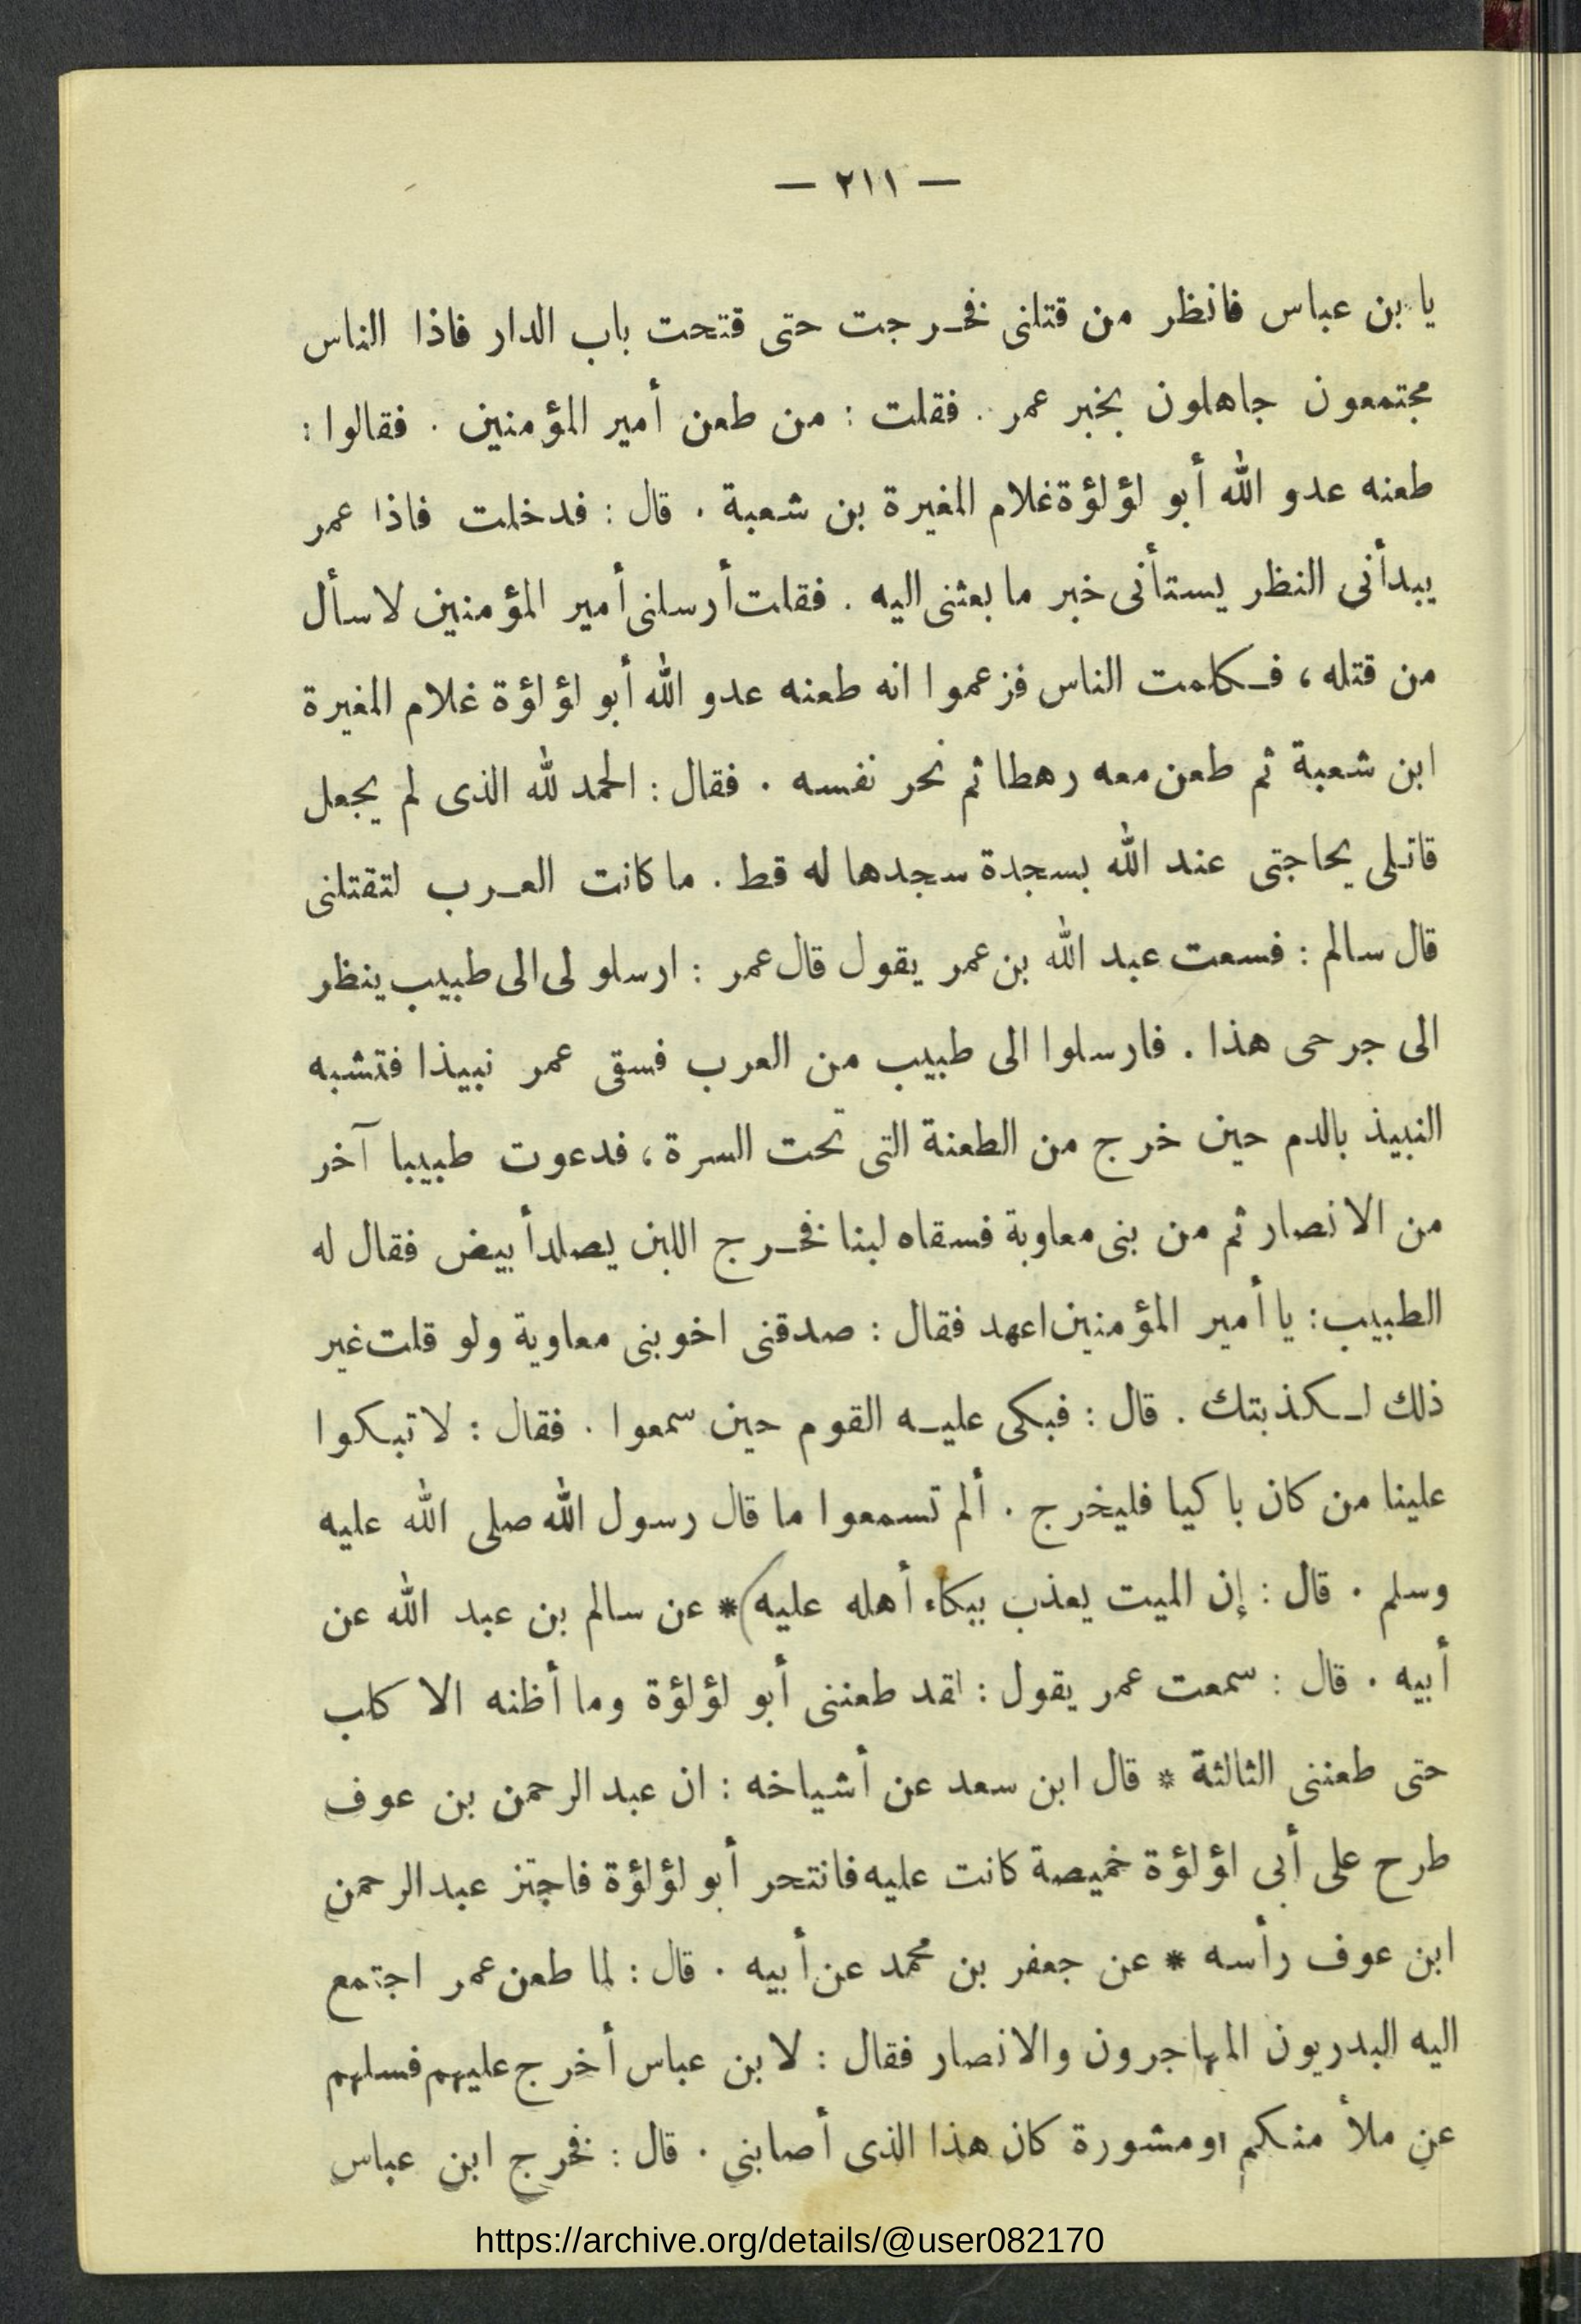 — ٢١١ —
يا بن عباس فانظر من قتلنى فخرجت حتى قتحت باب الدار فاذا الناس
مجتمعون جاهلون بخبر عمر . فقلت : من طعن أمير المؤمنين . فقالوا :
طعنه عدو الله أبو لؤلؤة غلام المغيرة بن شعبة . قال : فدخلت فاذا عمر
يبدأنى النظر يستأنى خبر ما بعثنى اليه . فقلت أرسلنى أمير المؤمنين لاسأل
من قتله ، فكلمت الناس فزعموا انه طعنه عدو الله أبو لؤلؤة غلام المغيرة
ابن شعبة ثم طعن معه رهطا ثم نحر نفسه . فقال : الحمد لله الذى لم يجعل
قاتلى يحاجنى عند الله بسجدة سجدها له قط . ما كانت العرب لتقتلنى
قال سالم : فسعت عبد الله بن عمر يقول قال عمر : ارسلو لى الى طبيب ينظر
الى جرحى هذا . فارسلوا الى طبيب من العرب فسقى عمر نبيذا فتشبه
النبيذ بالدم حين خرج من الطعنة التى تحت السرة ، فدعوت طبيبا آخر
من الانصار ثم من بنى معاوية فسقاه لبنا فخرج اللبن يصلد أبيض فقال له
الطبيب : يا أمير المؤمنين اعهد فقال : صدقنى اخو بنى معاوية ولو قلت غير
ذلك لكذبتك . قال : فبكى عليه القوم حين سمعوا . فقال : لا تبكوا
علينا من كان باكيا فليخرج . ألم تسمعوا ما قال رسول الله صلى الله عليه
وسلم . قال : إن الميت يعذب ببكاء أهله عليه ) * عن سالم بن عبد الله عن
أبيه . قال : سمعت عمر يقول : لقد طعننى أبو لؤلؤة وما أظنه الا كلب
حتى طعننى الثالثة * قال ابن سعد عن أشياخه : ان عبد الرحمن بن عوف
طرح على أبى لؤلؤة خميصة كانت عليه فانتحر أبو لؤلؤة فاجتز عبد الرحمن
ابن عوف رأسه * عن جعفر بن محمد عن أبيه . قال : لما طعن عمر اجتمع
اليه البدريون المهاجرون والانصار فقال : لابن عباس أخرج عليهم فسلهم
عن ملأ منكم او مشورة كان هذا الذى أصابنى . قال : فخرج ابن عباس
https://archive.org/details/@user082170